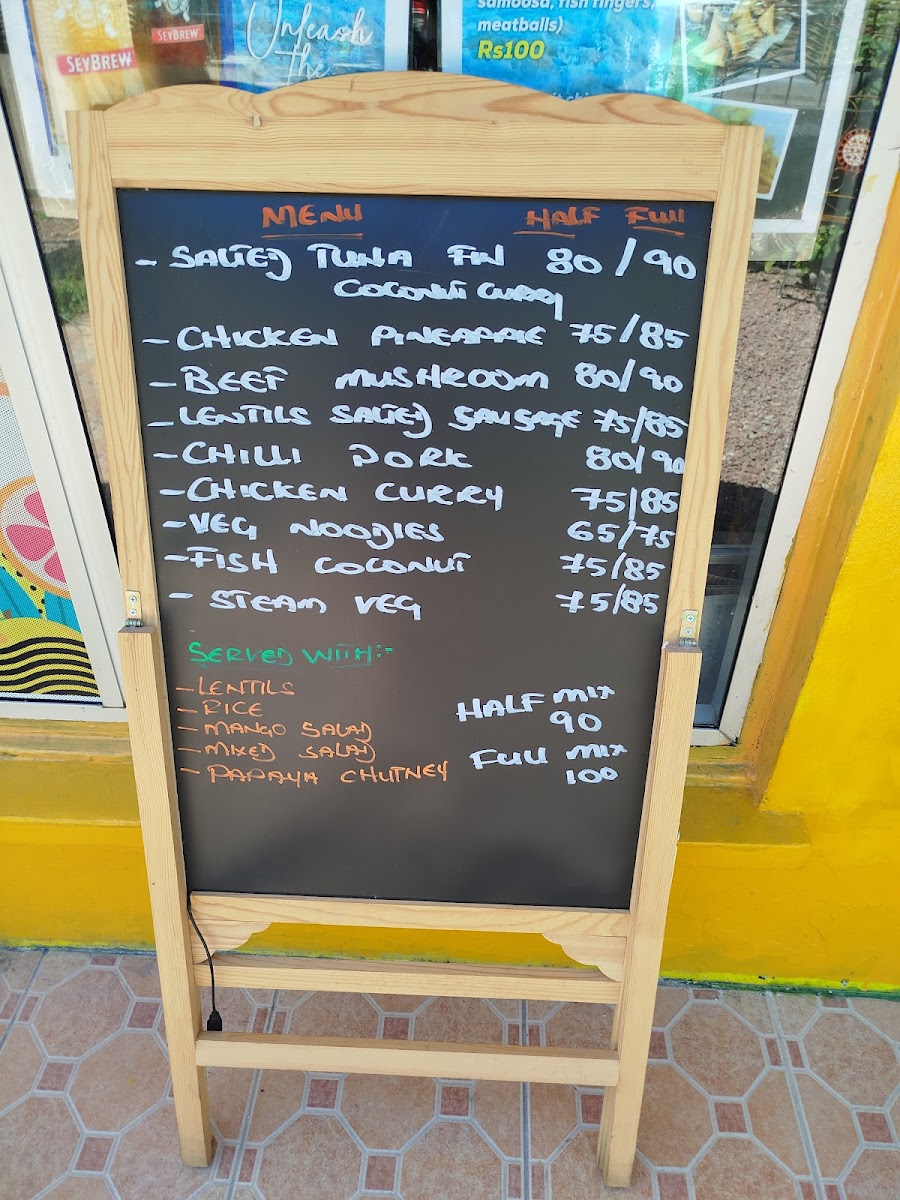 SEYBREW
SEYBREW
Unleash
the
samoosa, fish fingers,
meatballs)
Rs100
MENU HALF FULL
- SALTED TUNA FIN 80/90
COCONUT CURRY
- CHICKEN PINEAPPLE 75/85
- BEEF MUSHROOM 80/90
- LENTILS SALTED SAUSAGE 75/85
- CHILLI PORK 80/90
- CHICKEN CURRY 75/85
- VEG NOODLES 65/75
- FISH COCONUT 75/85
- STEAM VEG 75/85
SERVED WITH:-
- LENTILS
- RICE
- MANGO SALAD
- MIXED SALAD
- PAPAYA CHUTNEY
HALF MIX
90
FULL MIX
100